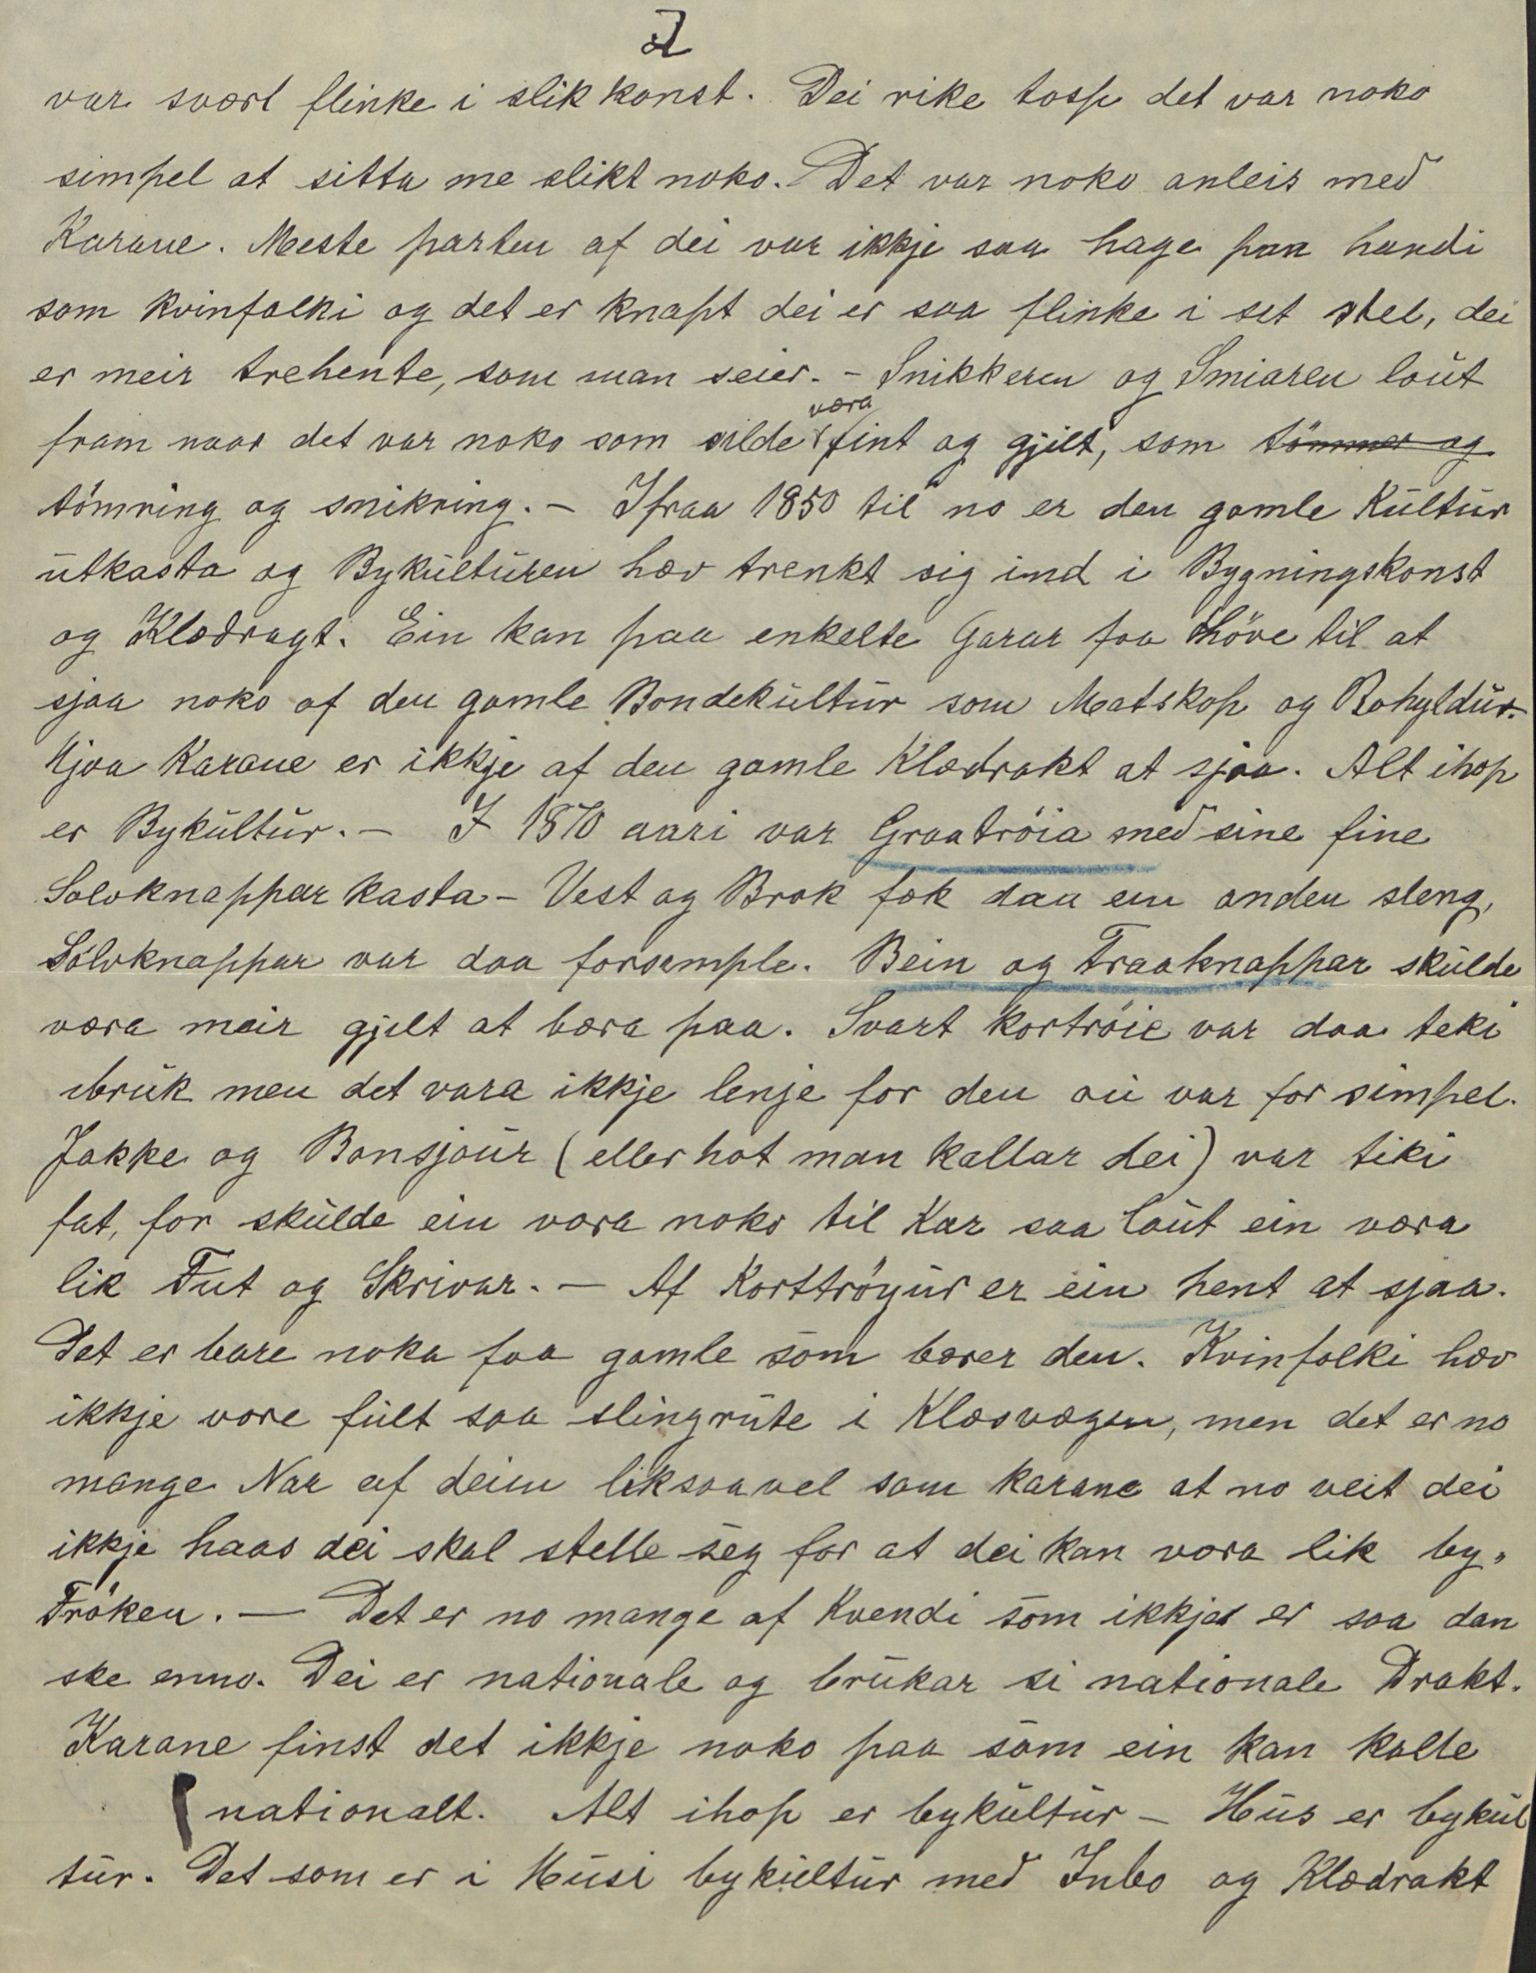 2
var svært flinke i slik konst. Dei rike tosp det var noko
simpel at sitta me slikt noko. Det var noko anleis med
Karane. Meste parten af dei var ikkje saa hage paa handi
som kvinfolki og det er knapt dei er saa flinke i set stel, dei
er meir trehente, som man seier. - Snikkeren og Smiaren loüt
fram naar det var noko som silde væra fint og gjilt, som tömmer og
tömring og snikring. - Ifraa 1850 til no er den gamle Kültür
ütkasta og Bykültüren hæv trenkt sig ind i Bygningskonst
og Klædragt. Ein kan paa enkelte Garar faa höve til at
sjaa noko af den gamle Bondekültür som Matskap og Bohyldür.
Hjaa Karane er ikkje af den gamle Klædrakt at sjaa. Alt ihop
er Bykültür. - I 1870 aari var Graatröia med sine fine
Solvknappar kasta - Vest og Brok fæk daa ein anden sleng,
Sölvknappar var daa forsemple. Bein og Traaknappar skülde
væra meir gjilt at bæra paa. Svart kortröie var daa teki
ibrük men det vara ikkje lenje for den oü var for simpel.
Jakke og Bonsjoür (eller hot man kallar dei) var tiki
fat, for skülde ein væra noko til Kar saa loüt ein væra
lik Fut og Skrivar. - Af Korttröyür er ein hent at sjaa.
Det er bare noka faa gamle som bærer den. Kvinfolki hæv
ikkje vore fült saa slingrüte i Klæsvægen, men det er no
mange Nar af deim liksaavel som karane at no veit dei
ikkje haas dei skal stelle seg for at dei kan væra lik by„
Fröken. - Det er no mange af Kvendi som ikkje er saa dan
ske enno. Dei er nationale og brükar si nationale Drakt.
Karane finst det ikkje noko paa som ein kan kalle
nationalt. Alt ihop er bykültür - Hüs er bykül
tür. Det som er i Hüsi bykültür med Inbo og Klædrakt